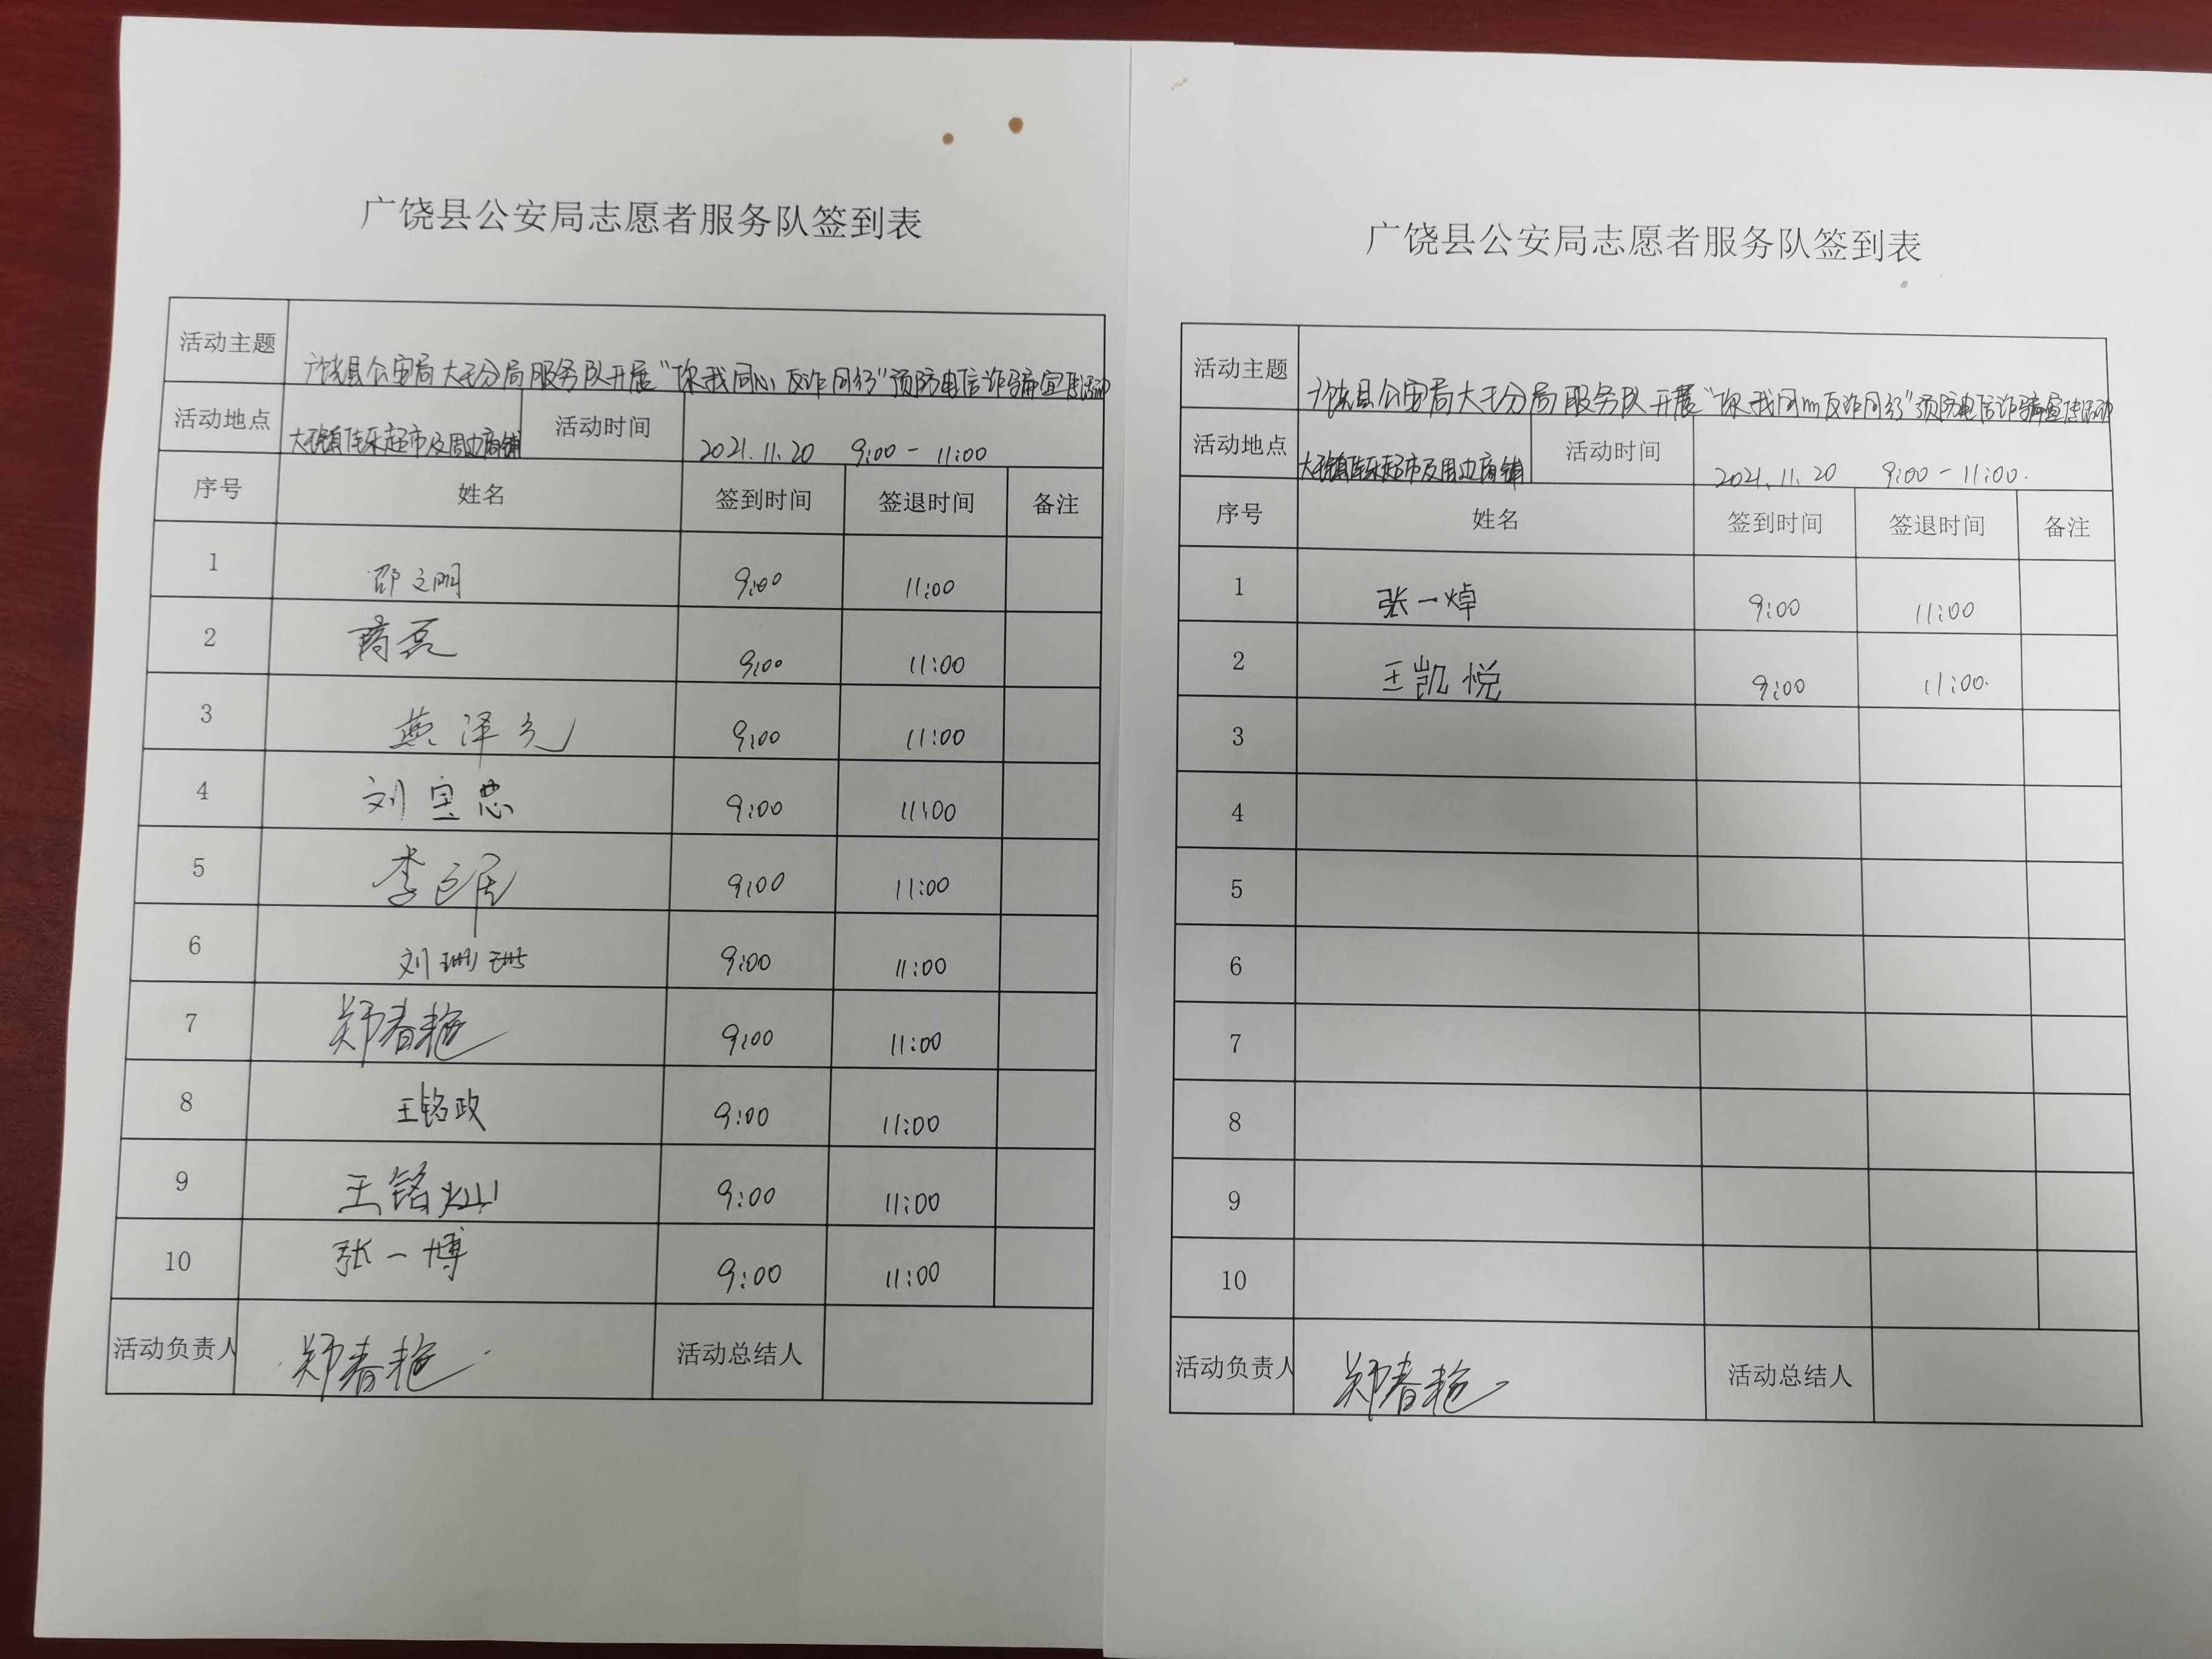 广饶县公安局志愿者服务队签到表
活动主题 广饶县公安局大王分局服务队开展“你我同心 反诈同行”预防电信诈骗宣传活动
活动地点 大王镇佳乐超市及周边商铺 活动时间 2021.11.20 9:00-11:00
序号 姓名 签到时间 签退时间 备注
1 邵之明 9:00 11:00
2 蒋磊 9:00 11:00
3 燕泽元 9:00 11:00
4 刘宝忠 9:00 11:00
5 李 9:00 11:00
6 刘珊珊 9:00 11:00
7 郑春艳 9:00 11:00
8 王铭政 9:00 11:00
9 王铭灿 9:00 11:00
10 张一博 9:00 11:00
活动负责人 郑春艳 活动总结人
广饶县公安局志愿者服务队签到表
活动主题 广饶县公安局大王分局服务队开展“你我同心反诈同行”预防电信诈骗宣传活动
活动地点 大王镇佳乐超市及周边商铺 活动时间 2021.11.20 9:00-11:00.
序号 姓名 签到时间 签退时间 备注
1 张一焯 9:00 11:00
2 王凯悦 9:00 11:00.
3
4
5
6
7
8
9
10
活动负责人 郑春艳 活动总结人